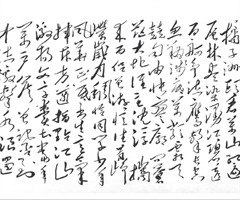 橘子洲頭看萬山红遍
层林尽染漫江碧透
百舸争流鹰击长空
鱼翔浅底萬类霜天
竞自由怅寥廓問
苍茫大地谁主沉浮携
来百侣曾游忆往昔峥
嵘歲月稠恰同学少年
風華正茂書生意气挥
斥方遒指点江山
激扬文字粪土当年
萬户侯曾记否到
中流擊水浪遏